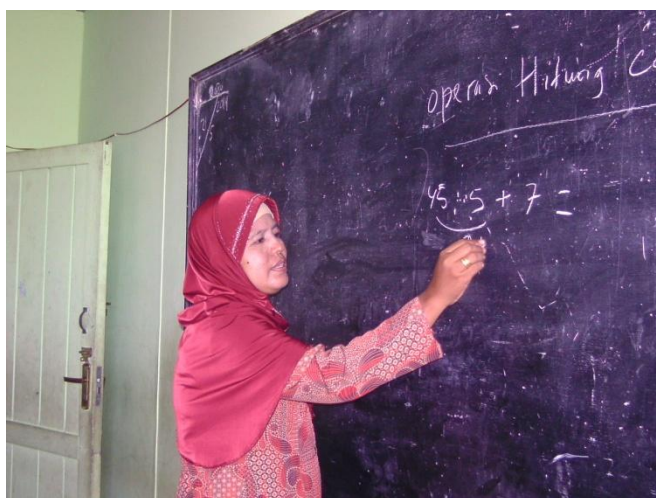 operasi Hitung Ca
45 : 5 + 7 =